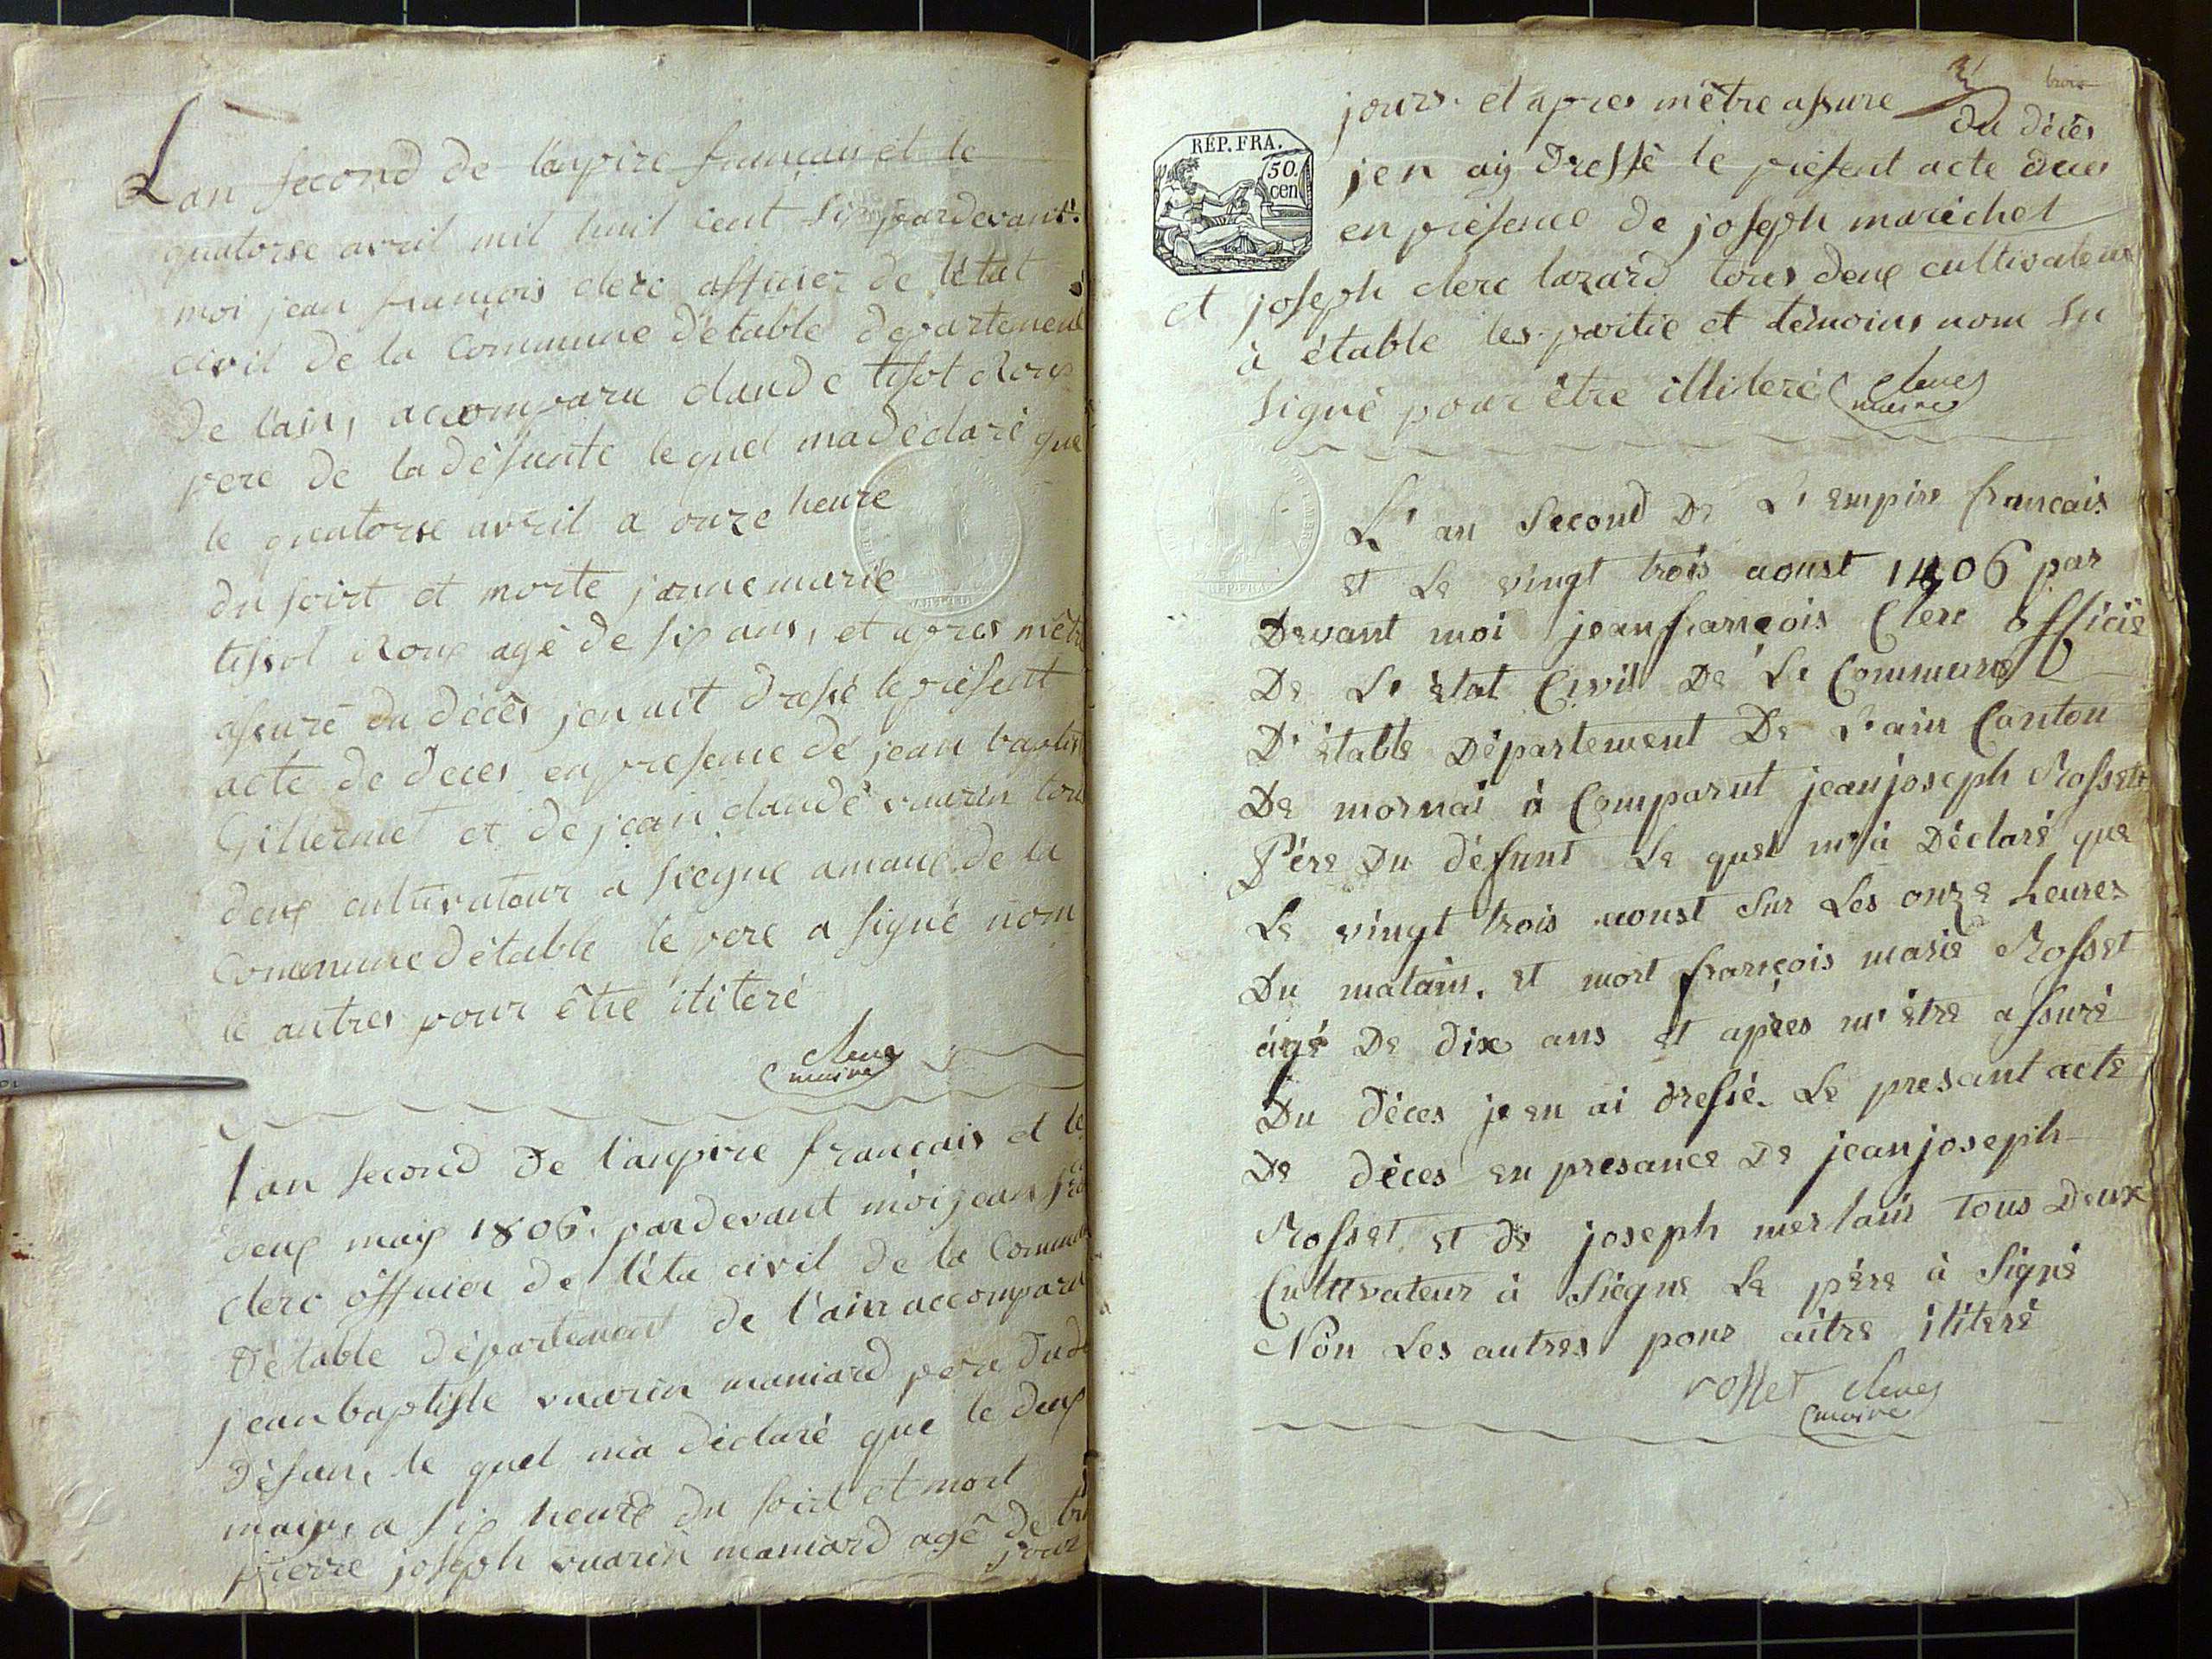 L'an second de l'anpire francais et le
quatorse avril mil huit cent six pardevant
moi jean françois clerc officier de l'état
civil de la Commune d'étable departement
de l'ain, accomparu claude tissot Roux
pere de la défunte le quel ma déclaré que
le quatorse avril a onze heure
du soirt et morte janne marie
tissot Roux agé de six ans, et apres métre
assuré du décès jen ait dressé le présent
acte de deces en presence de jean baptis
Gillermet et de jean claude vuarin tou
deux cultivatour a siegne amaux de la
Commune détable le pere a signé nom
le autres pour être ititeré
maire
l'an second de l'anpire francais et le
deux may 1806. pardevant moi jean fra
clerc officier de l'éta civil de la Commune
détable département de l'ain accomparu
jean baptiste vuarin maniard pere du dé
défun, le quel ma déclaré que le deux
may, a six heure du soirt et mort
pierre joseph vuarin maniard agé de tr
jour
3 trois
jours. et apres m'être assuré
du décès
j'en ay dressé le présent acte deces
en présence de joseph maréchet
et joseph clerc lazard tous deux cultivateur
à étable les partie et témoins nom su
signé pour être illiteré
maire
RÉP. FRA.
50.
cen
L' an second De L' empire francais
et Le vingt trois aoust 1806 par
Devant moi jean françois Clerc officié
De L' état Civil De La Commune
D' étable Département De L' ain Canton
De mornai à Comparut jean joseph Rosset
Père Du défunt Le quel m' à Déclaré que
Le vingt trois aoust sur Les onze heures
Du matain. et mort françois marie Rosset
ágé De dix ans et apres m' être assuré
Du déces je en ai dressé Le presant acte
De déces en presance De jean joseph
Rosset et de joseph merlain Tous Deux
Cultivateur à Siègne Le pére à Signé
Nòn Les autres pour aitre ititeré
rosset
maire